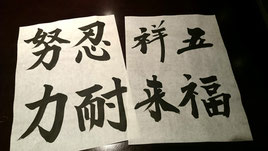 忍耐
努力
五福
祥来